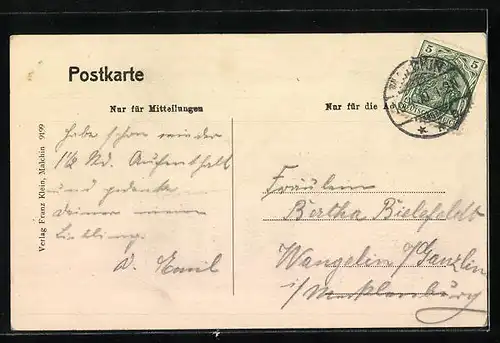 Postkarte
Nur für Mitteilungen
Nur für die Ad
Habe schon wieder
1½ Std. Aufenthalt
und gedenke
deiner meine
Liebling
d. Emil
Fräulein
Bertha Bielefeldt
Wangelin b/Ganzlin
i/Mecklenburg
Verlag Franz Klein, Malchin 9199
5 5